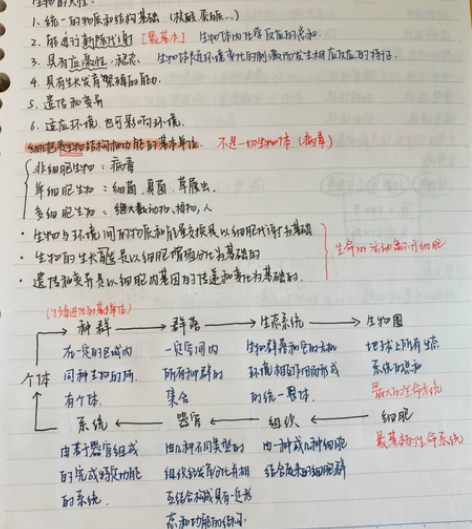 生物的共性:
1. 统一的物质和结构基础 (核酸 蛋白..)
2. 能进行新陈代谢 [最基本] 生物体内化学反应的总和.
3. 具有应激性, 稳态. 生物体对环境变化的刺激而发生相应反应的特征.
4. 具有生长发育繁殖的能力.
5. 遗传和变异
6. 适应环境, 也可影响环境.
细胞是生物结构和功能的基本单位. 不是一切生物体 (病毒)
非细胞生物: 病毒
单细胞生物: 细菌, 真菌, 草履虫,
多细胞生物: 绝大数动物, 植物, 人
· 生物与环境间的物质和能量交换是以细胞代谢为基础
· 生物的生长发育是以细胞增殖分化为基础的 生命的活动离不开细胞
· 遗传和变异是以细胞内基因的传递和变化为基础的.
(生物进化的基本单位)
种群 → 群落 → 生态系统 → 生物圈
在一定的区域内 一定空间内 生物群落和它的无机 地球上所有生态
个体 同种生物的所 所有种群的 环境相互作用而形成 系统的总和
有个体. 集合 的统一整体. 最大的生命系统
系统 ← 器官 ← 组织 ← 细胞
由若干器官组成 由几种不同类型的 由一种或几种细胞 最基本的生命系统
的完成特定功能 组织经发育分化并相 结合起来的细胞群
的系统. 互结合构成具有一定形
态和功能的结构.